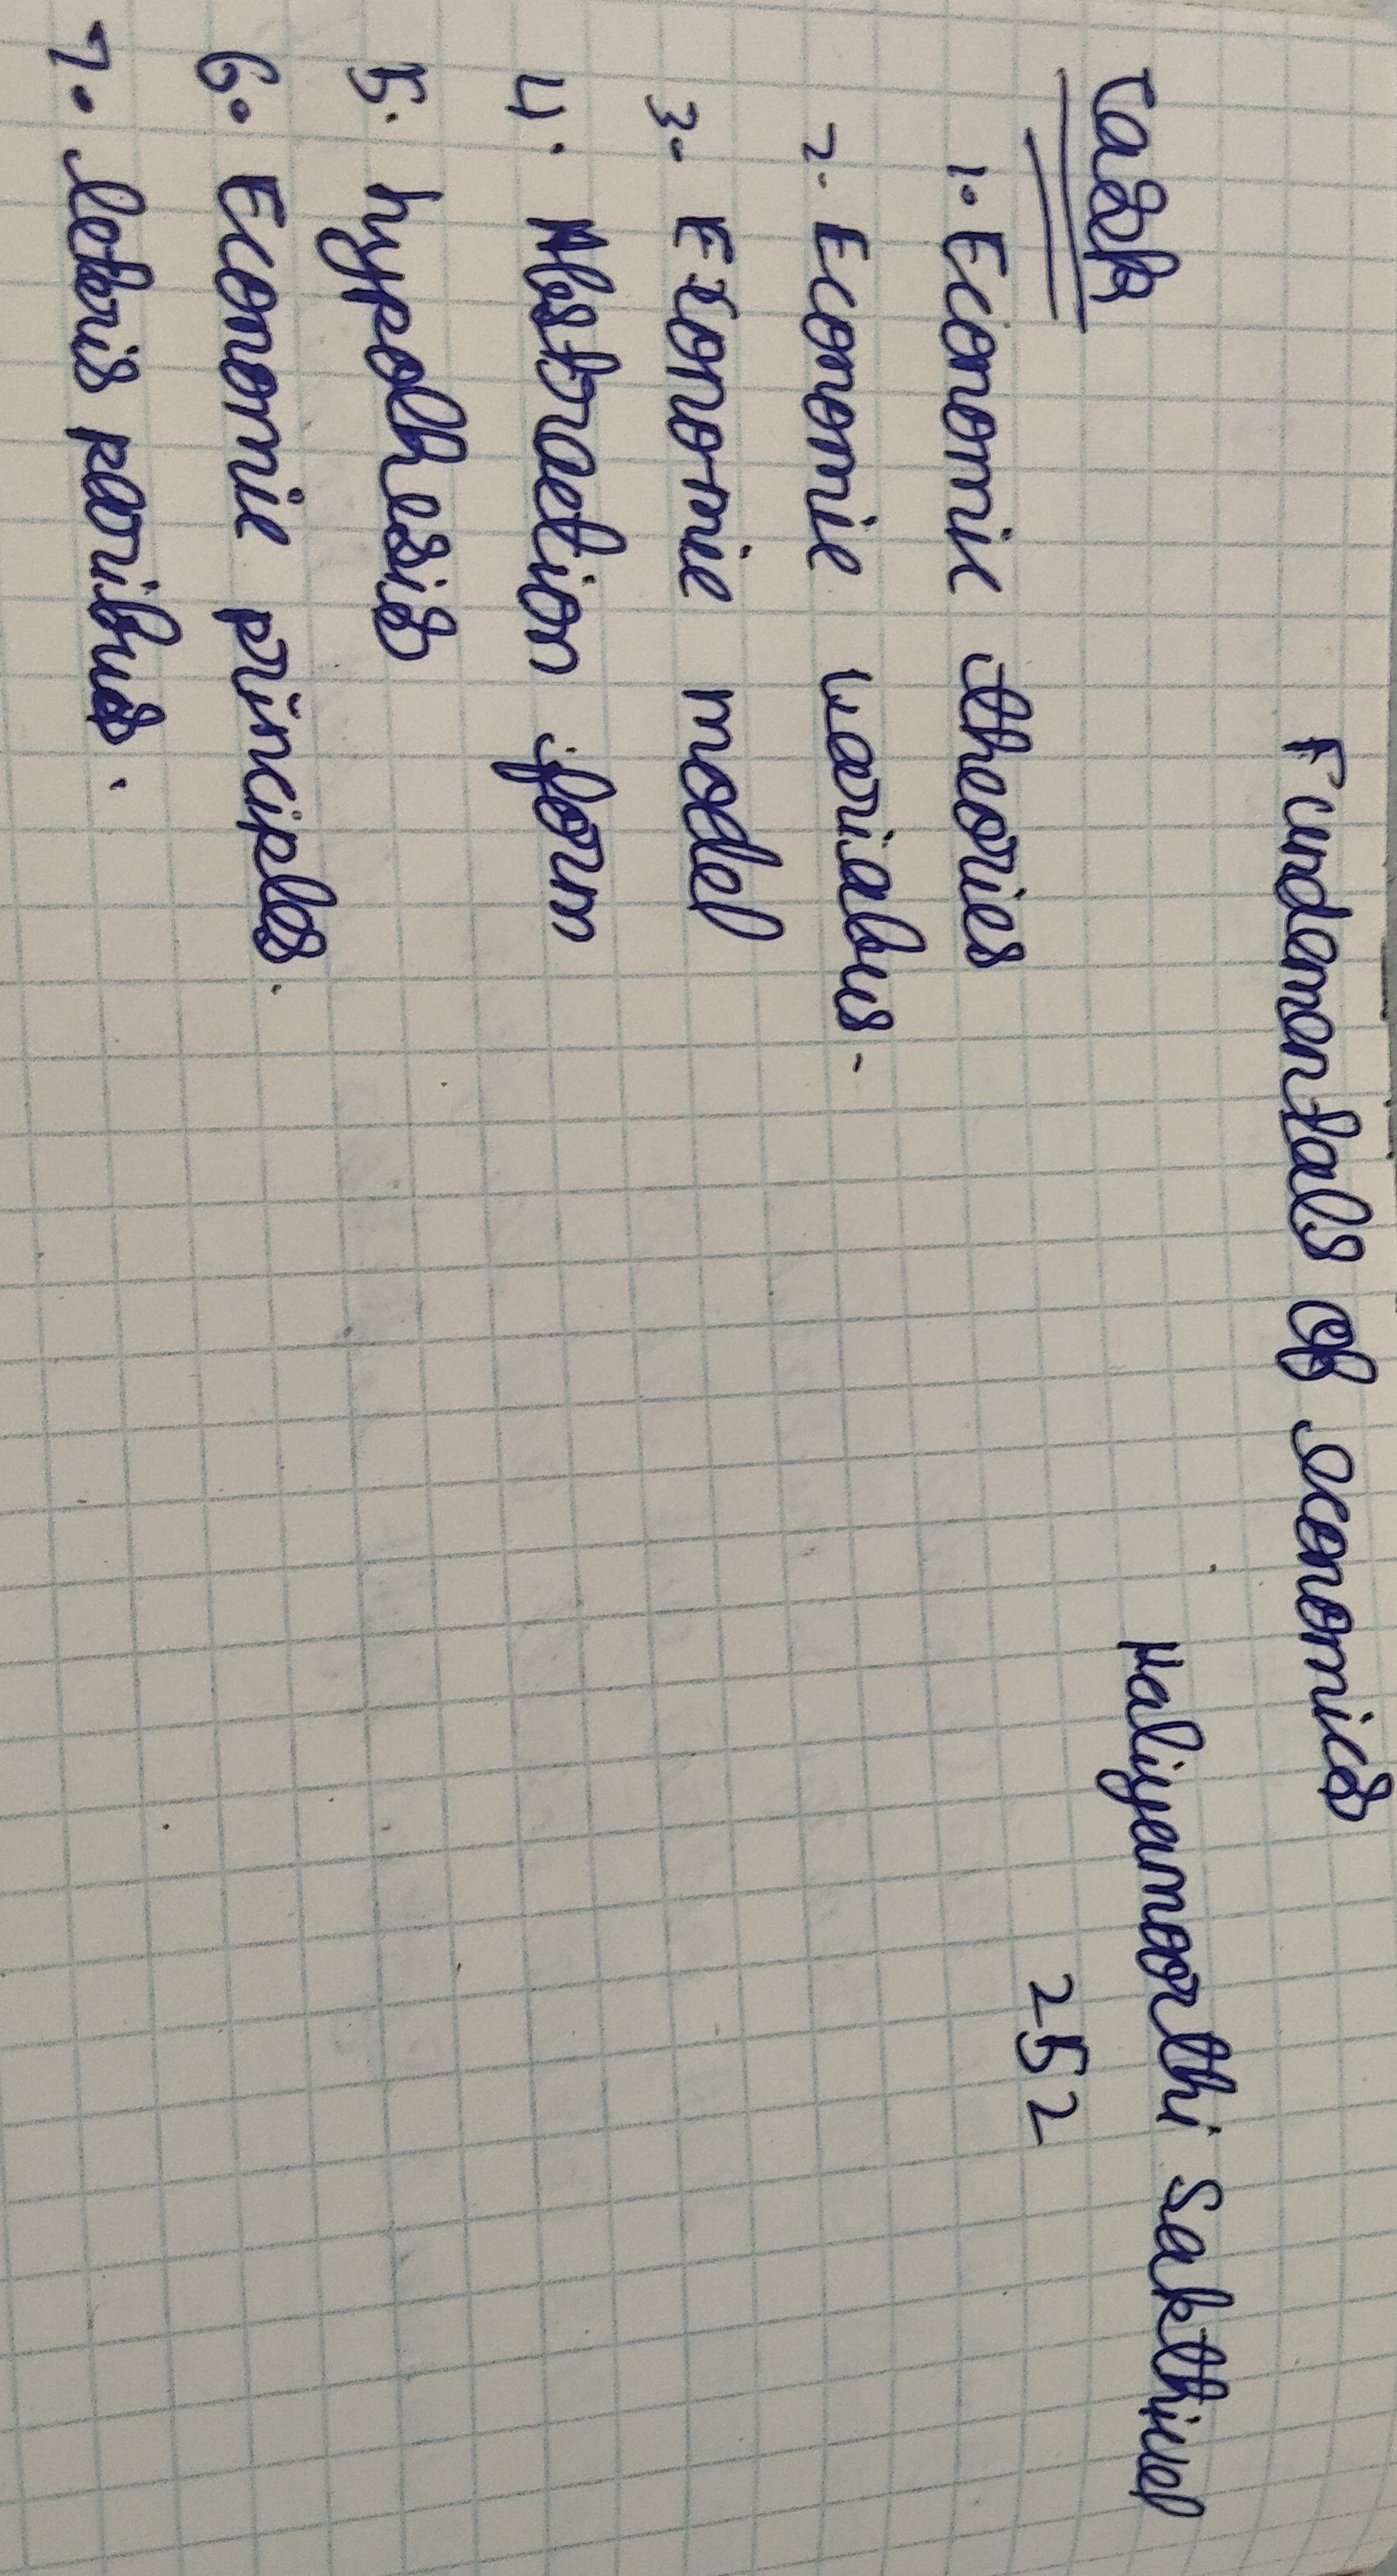 Fundamentals of economics
Kaliyamoorthi Sakthivel
252
Task
1. Economic theories
2. Economic variables.
3. Economic model
4. Abstraction form
5. hypothesis
6. Economic principles.
7. leteris paribus.